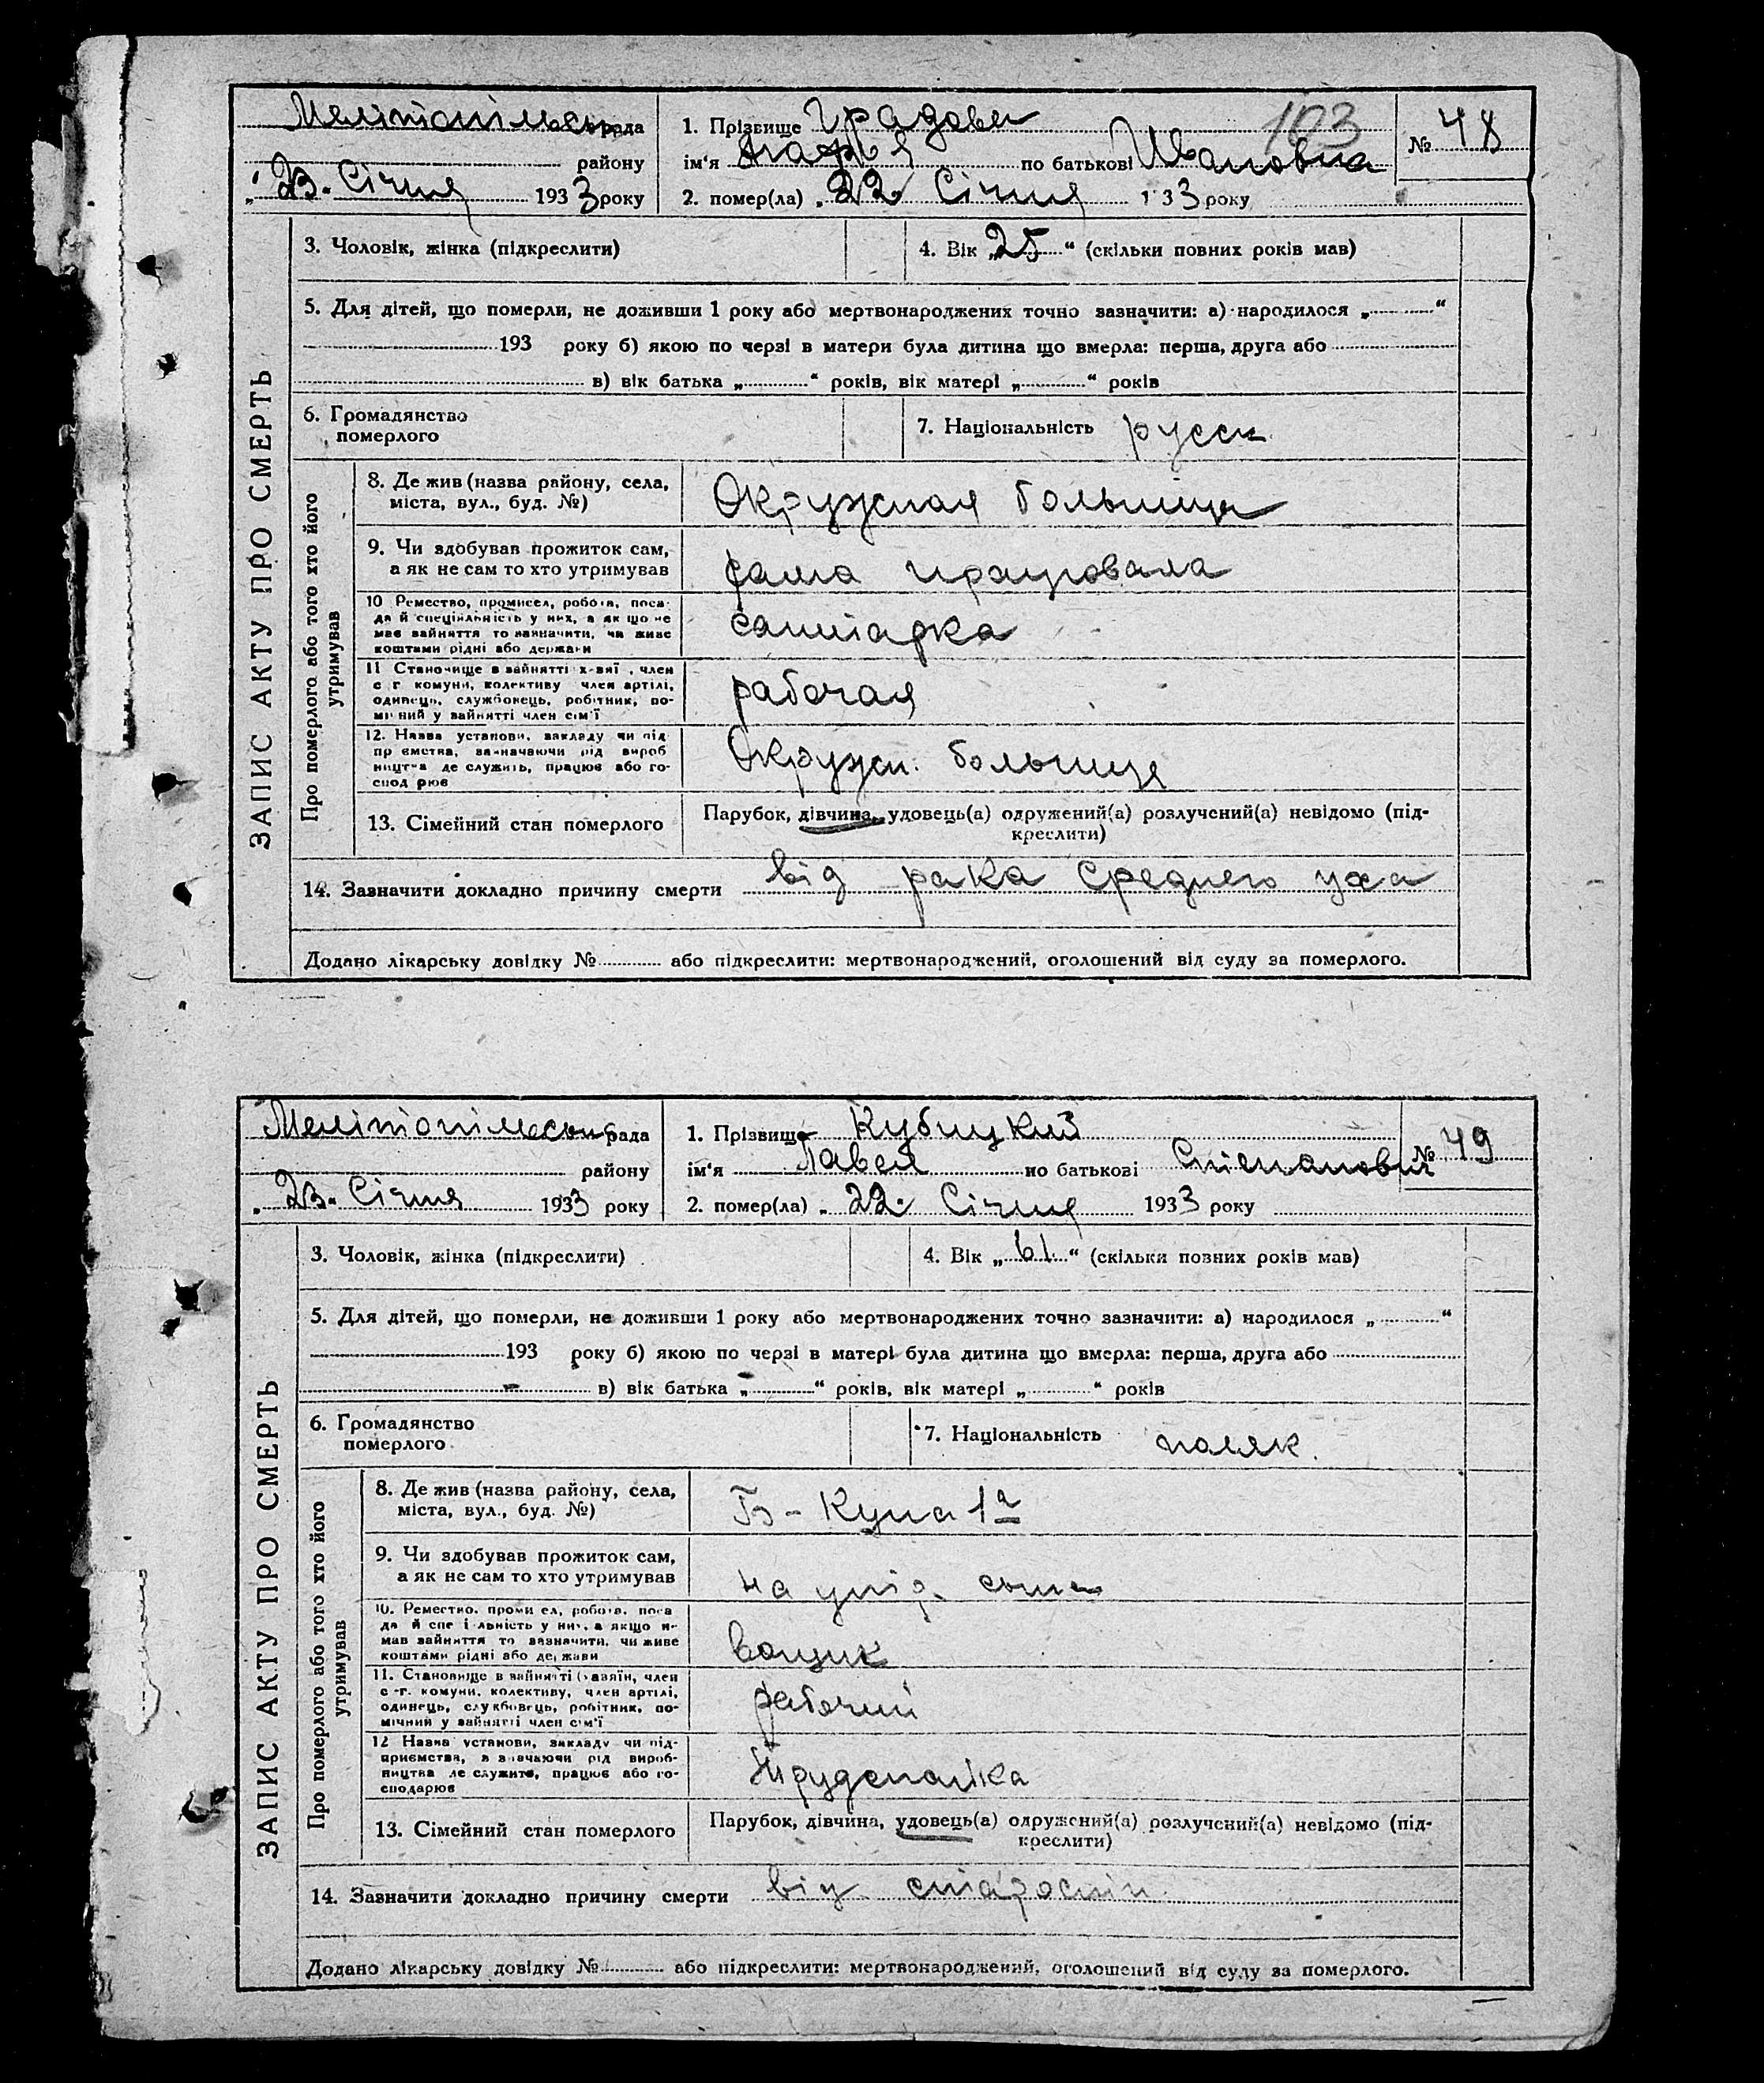 Мелітопільськ рада
району
„23. Січня 1933 року
1. Прізвище Градова
ім'я Марья по батькові Ивановна
2. помер(ла) 22 Січня 1933 року
103
№ 48
ЗАПИС АКТУ ПРО СМЕРТЬ
3. Чоловік, жінка (підкреслити)
4. Вік „25“ (скільки повних років мав)
5. Для дітей, що померли, не доживши 1 року або мертвонароджених точно зазначити: а) народилося „ “
193 року б) якою по черзі в матери була дитина що вмерла: перша, друга або
в) вік батька „ “ років, вік матері „ “ років
6. Громадянство
померлого
7. Національність русск.
Про померлого або того хто його
утримував
8. Де жив (назва району, села,
міста, вул., буд. №)
Окружная больница
9. Чи здобував прожиток сам,
а як не сам то хто утримував
сама працювала
10 Ремество, промисел, робота, поса-
да й спеціяльність у них, а як що не
має зайняття то зазначити, чи живе
коштами рідні або держави
санитарка
11 Становище в зайнятті х-вяї, член
с г. комуни, колективу член артілі,
одинець, службовець, робітник, по-
мічний у зайнятті член сім'ї
рабочая
12. Назва установи, закладу чи під
пр ємства, зазначаючи рід вироб
ництва де служить, працює або го-
спод рює
Окружн. больница
13. Сімейний стан померлого
Парубок, дівчина, удовець(а) одружений(а) розлучений(а) невідомо (під-
креслити)
14. Зазначити докладно причину смерти від рака среднего уха
Додано лікарську довідку № або підкреслити: мертвонароджений, оголошений від суду за померлого.
Мелітопільськ рада
району
„23. Січня 1933 року
1. Прізвище Кубицкий
ім'я Павел по батькові Степанович
2. помер(ла) „22. Січня 1933 року
№ 49
ЗАПИС АКТУ ПРО СМЕРТЬ
3. Чоловік, жінка (підкреслити)
4. Вік „61.“ (скільки повних років мав)
5. Для дітей, що померли, не доживши 1 року або мертвонароджених точно зазначити: а) народилося „ “
193 року б) якою по черзі в матері була дитина що вмерла: перша, друга або
в) вік батька „ “ років, вік матері „ “ років
6. Громадянство
померлого
7. Національність поляк.
Про померлого або того хто його
утримував
8. Де жив (назва району, села,
міста, вул., буд. №)
1а
9. Чи здобував прожиток сам,
а як не сам то хто утримував
на утрі. сына
10. Ремество, проми ел, робота, поса
да й спе і льність у них, а якщо н-
мав зайняття то зазначити, чи живе
коштами рідні або держави
11. Становище в зайнятті (хазяїн, член
с -г. комуни, колективу, член артілі,
одинець, службовець, робітник, по-
мічний у зайнятті член сім'ї
рабочий
12 Назва установи, закладу чи під-
приємства, зазначаючи рід вироб-
ництва де служить, працює або го-
сподарює
13. Сімейний стан померлого
Парубок, дівчина, удовець(а) одружений(а) розлучений(а) невідомо (під-
креслити)
14. Зазначити докладно причину смерти від старости
Додано лікарську довідку № або підкреслити: мертвонароджений, оголошений від суду за померлого.